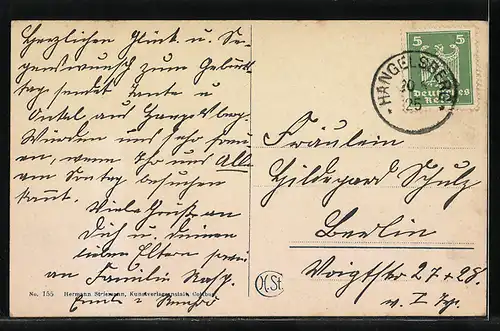 Herzlichen Glück u. Se-
genswunsch zum Geburts-
tag sendet Tante u
Onkel aus Hangelsberg.
Würden uns sehr freu-
en, wenn Ihr uns Alle
am Sontag besuchen
könnt.
Viele Grüße an
Dich u. Deinen
lieben Eltern sowie
an Familie
5 5
Deutsches
Reich
HANGELSBERG
25
Fräulein
Hildegard Schulz
Berlin
Voigtstr 27+28.
v. I Tp.
No. 155 Hermann Striemann, Kunstverlagsanstalt Cottbus